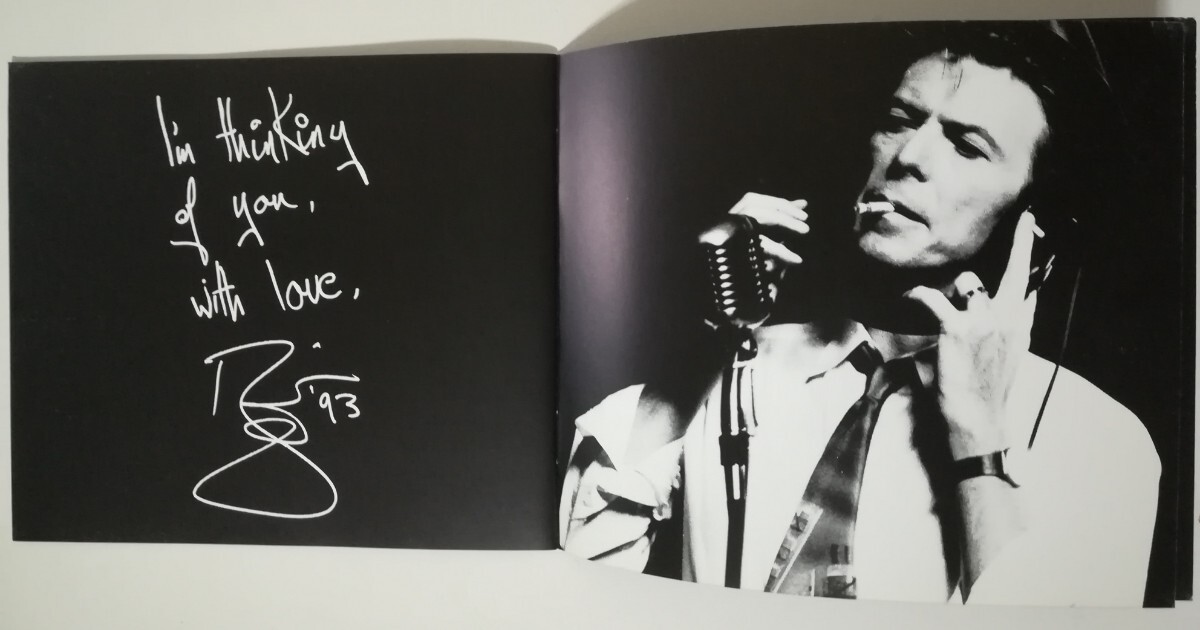 I'm thinking
of you,
with love,
'93